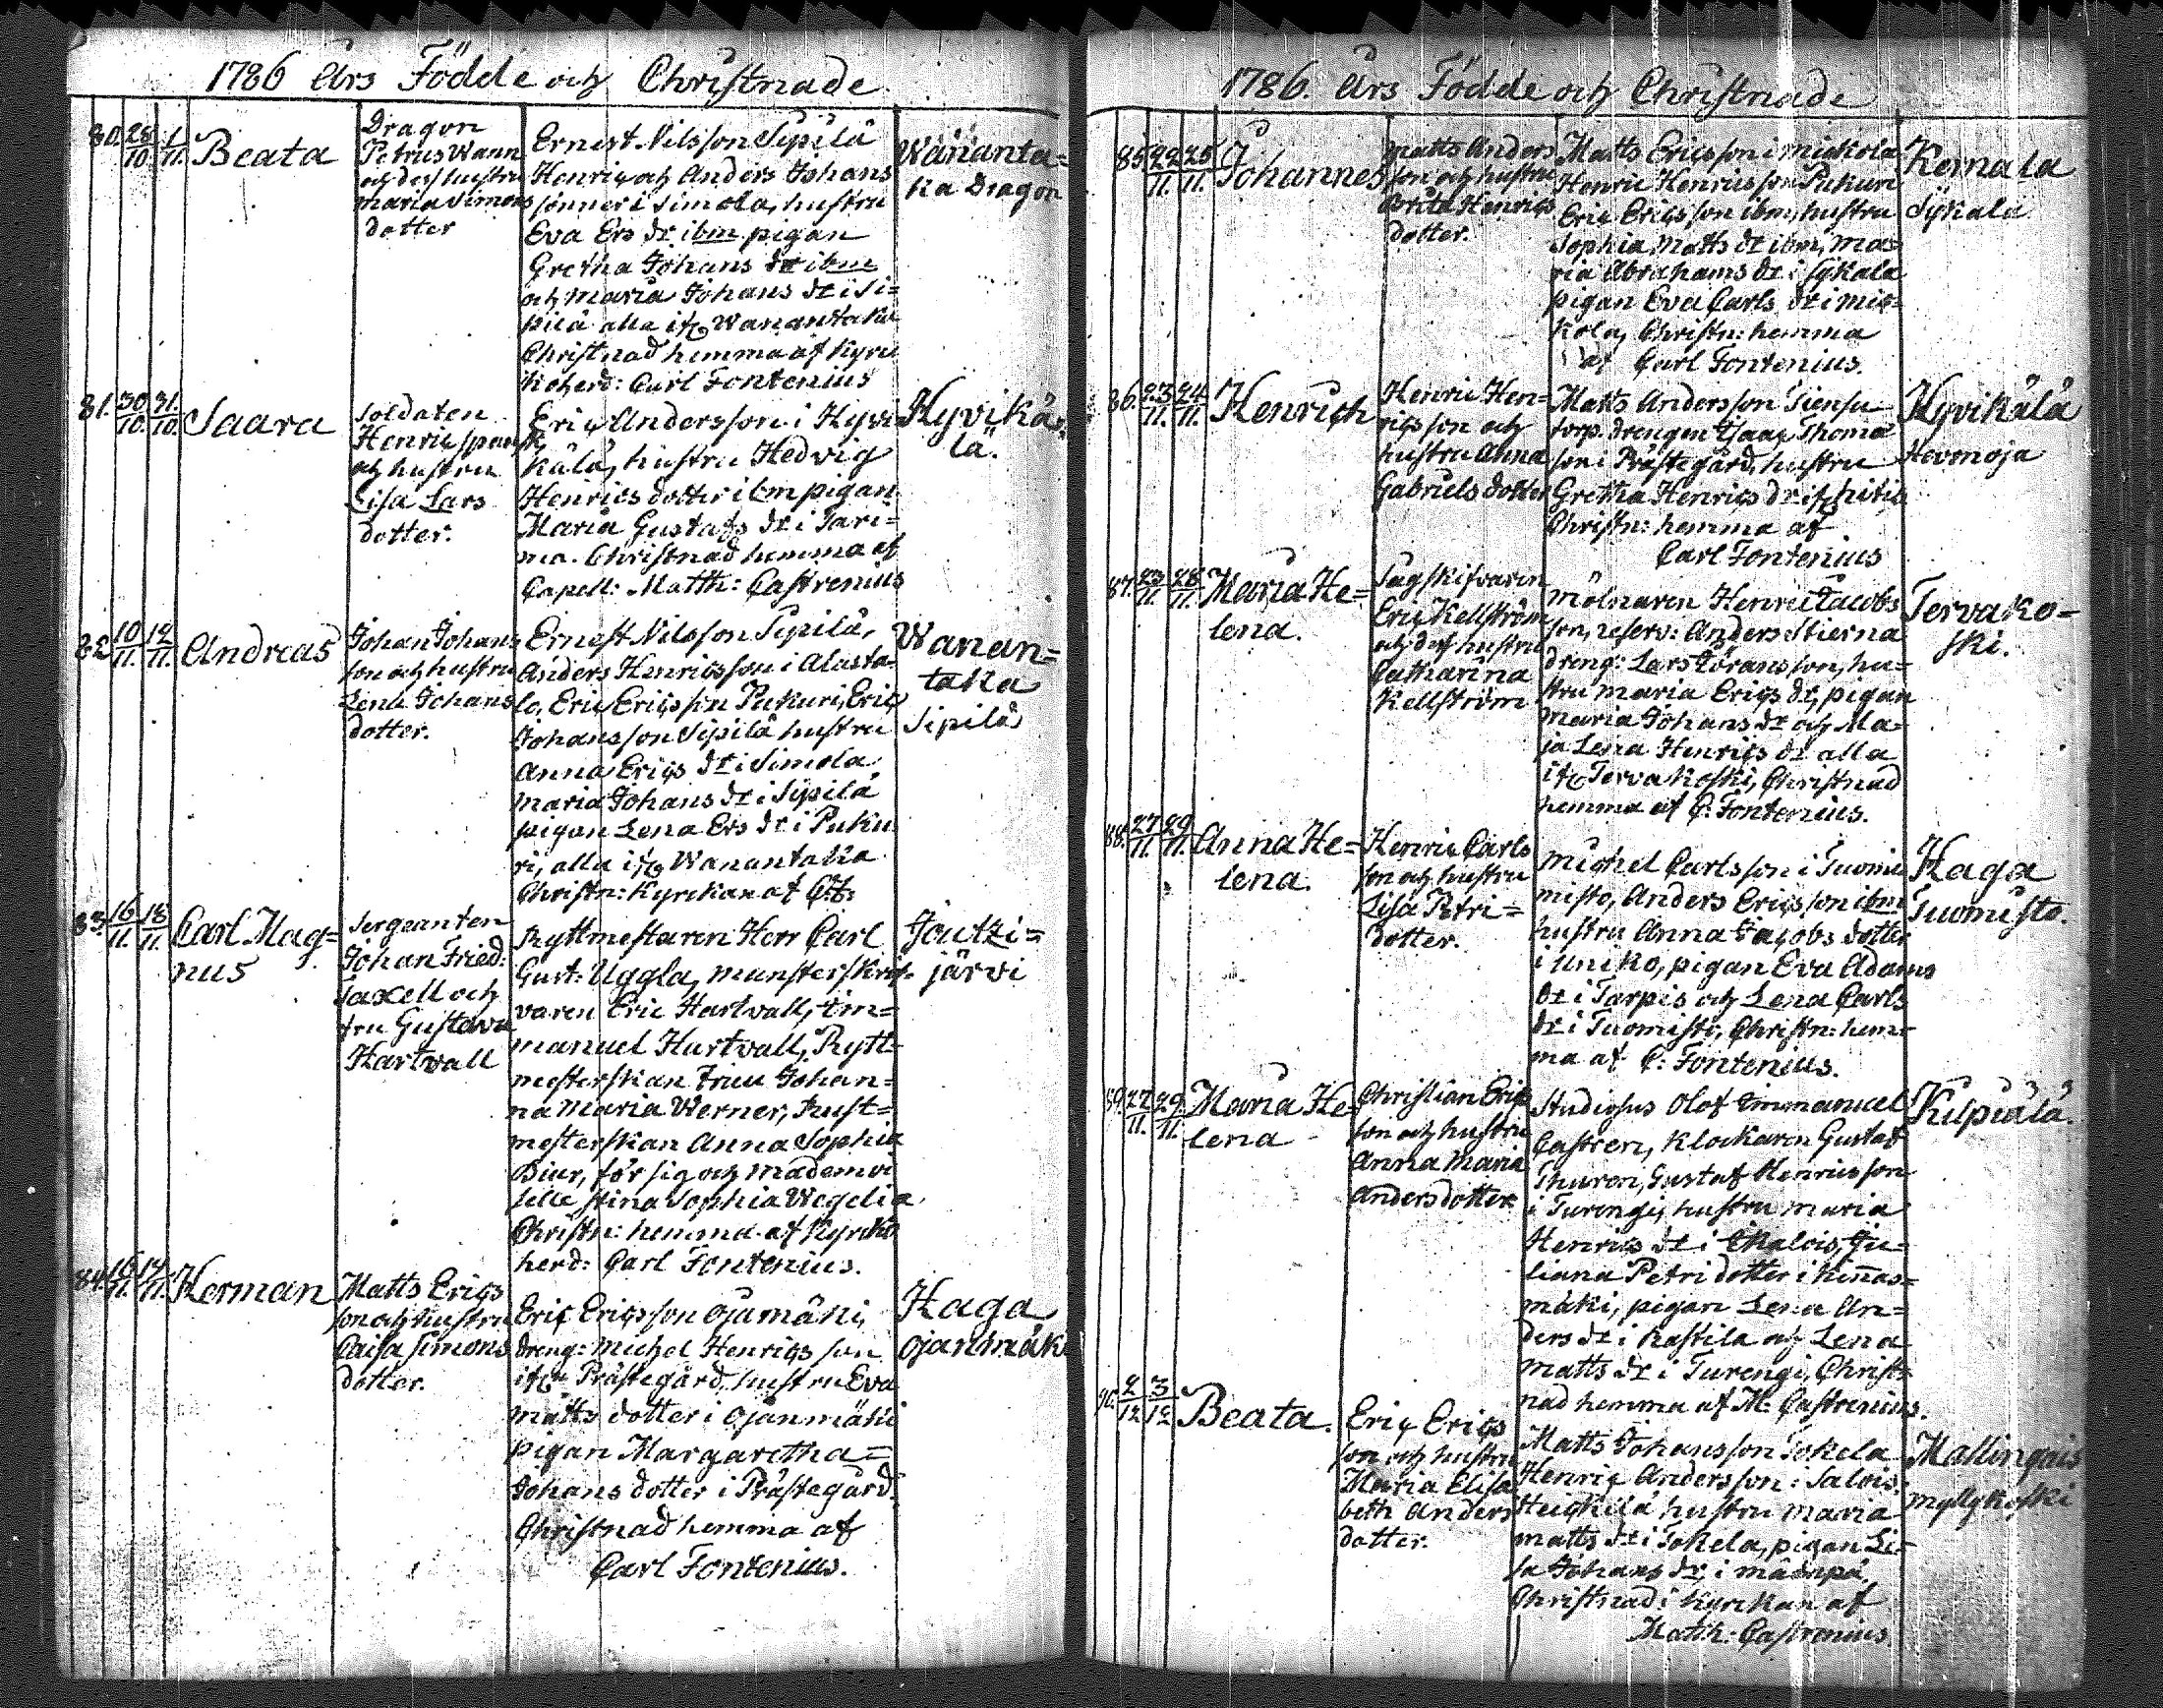 1786 Års Födde och Christnade
80. 28/10. 1/11. Beata
Dragon
Petrus Wann
och dess hustru
Maria Simons
dotter
Ernest Nilsson Sipilä
Henric och Anders Johans
sönner i Simola, hustru
Eva Ers dr ibm pigan
Gretha Johans dr ibm
och Maria Johans dr i Si=
pilä alla ifr. Wanantaka
Christnad hemma af Kyrck
koherd: Carl Fontenius
Wananta=
ka Dragon
81. 30/10. 31/10. Saara
Soldaten
Henric
och hustru
Lisa Lars
dotter.
Eric Andersson i Hyvi
kälä, hustru Hedvig
Henrics dotter ibm pigan
Maria Gustafs dr i Tari=
ma. Christnad hemma af
Capell: Matth: Castrenius
Hyvikä=
lä.
82 10/11. 12/11. Andreas
Johan Johans
son och hustru
Lena Johans
dotter.
Ernest Nilsson Sipilä,
Anders Henricsson i Alasta=
lo, Eric Ericsson Pukuri, Eric
Johansson Sipilä hustru
Anna Erics dr i Simola
Maria Johans dr i Sipilä
pigan Lena Ers dr i Puku
ri, alla ifr. Wanantaka
Christn: Kyrckan af C:F:
Wanan=
taka
Sipilä
83. 16/11. 18/11. Carl Mag=
nus
Sergeanten
Johan Fried:
Saxell och
fru Gustava
Hartwall
Ryttmestaren Herr Carl
Gust: Uggla, munsterskrif=
varen Eric Hartwall, Em=
manuel Hartvall, Rytt=
mesterskan Fru Johan=
na Maria Werner, Rust=
mesterskan Anna Sophia
för sig och Mademoi
selle Stina Sophia Wegelia
Christn: hemma af Kyrcko
herd: Carl Fontenius.
Joutzi=
järvi
84. 16/11. 17/11. Herman
Matts Erics
son och hustru
Caisa Simons
dotter.
Eric Ericsson Ojamäki,
dreng: Michel Henricsson
ifr. Prästegård, hustru Eva
Matts dotter i Ojanmäki
pigan Margaretha=
Johans dotter i Prästegård.
Christnad hemma af
Carl Fontenius.
Haga
Ojanmäki
1786. Års Födde och Christnade
85. 22/11. 25/11. Johannes
Matts Anders
son och hustru
Brita Henrics
dotter.
Matts Ericsson i Mickola
Henric Henricsson Pukuri
Eric Ericsson ibm, hustru
Sophia Matts dr ibm, Ma=
ria Abrahams dr i Sykala
pigan Eva Carls dr i Mic=
kola, Christn: hemma
af Carl Fontenius.
Kernala
Sykala
86. 23/11. 24/11. Henrich
Henric Hen=
ricsson och
hustru Anna
Gabriels dotter
Matts Andersson Siensu
torp. drengen Isaac Thoma
son i Prästegård, hustru
Gretha Henrics dr ifr.
Christn: hemma af
Carl Fontenius
Hyvikälä
Hevonoja
87. 23/11. 28/11. Maria He=
lena.
Sågskifvaren
Eric Kellström
och dess hustru
Catharina
Kellström
Mölnaren Henric Jacobs
son, reserv: Anders Stierna
dreng: Lars Göransson, hu=
stru Maria Erics dr, pigan
Maria Johans dr och Ma=
ja Lena Henrics dr alla
ifr. Tervakoski, Christnad
hemma af C: Fontenius.
Tervako=
ski.
88. 27/11. 29/11. Anna He=
lena.
Henric Carls
son och hustru
Lisa Petri=
dotter.
Michel Carlsson i Tuomi
misto, Anders Ericsson ibm
hustru Anna Jacobs dotter
i Uniko, pigan Eva Adams
dr i Tarpis och Lena Carls
dr i Tuomisto, Christn: hem=
ma af C: Fontenius.
Haga
Tuomisto.
89. 27/11. 29/11. Maria He=
lena
Christian Eric
son och hustru
Anna Maria
Andersdotter
Studiosus Olof Emmanuel
Castren, Klockaren Gustaf
Thuron, Gustaf Henricsson
i Turengi, hustru Maria
Henrics dr i Ekalois, Ju=
liana Petri dotter i Kinnas=
mäki, pigan Lena An=
ders dr i Rastila och Lena
Matts dr i Turengi, Christ=
nad hemma af M: Castrenius.
Kilpiälä.
90. 2/12 3/12 Beata.
Eric Erics
son och hustru
Maria Elisa
beth Anders
dotter.
Matts Johansson Tokela
Henric Andersson i Salois.
Heickilä hustru Maria
Matts dr i Tokela, pigan Li=
sa Johans dr i
Christnad i Kyrckan af
Matth: Castrenius
Mallingais
Myllykoski